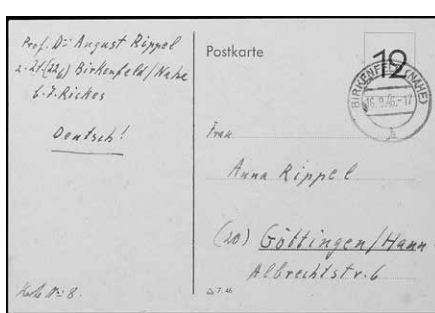 Prof. Dr. August Rippel
z. Zt. (22b) Birkenfeld/Nahe
b. J. Riches
Deutsch!
Karte Nr. 8.
Postkarte
12
BIRKENFELD (NAHE)
16.9.46.-17
Frau
Anna Rippel
(20) Göttingen/Hann.
Albrechtstr. 6
7. 46